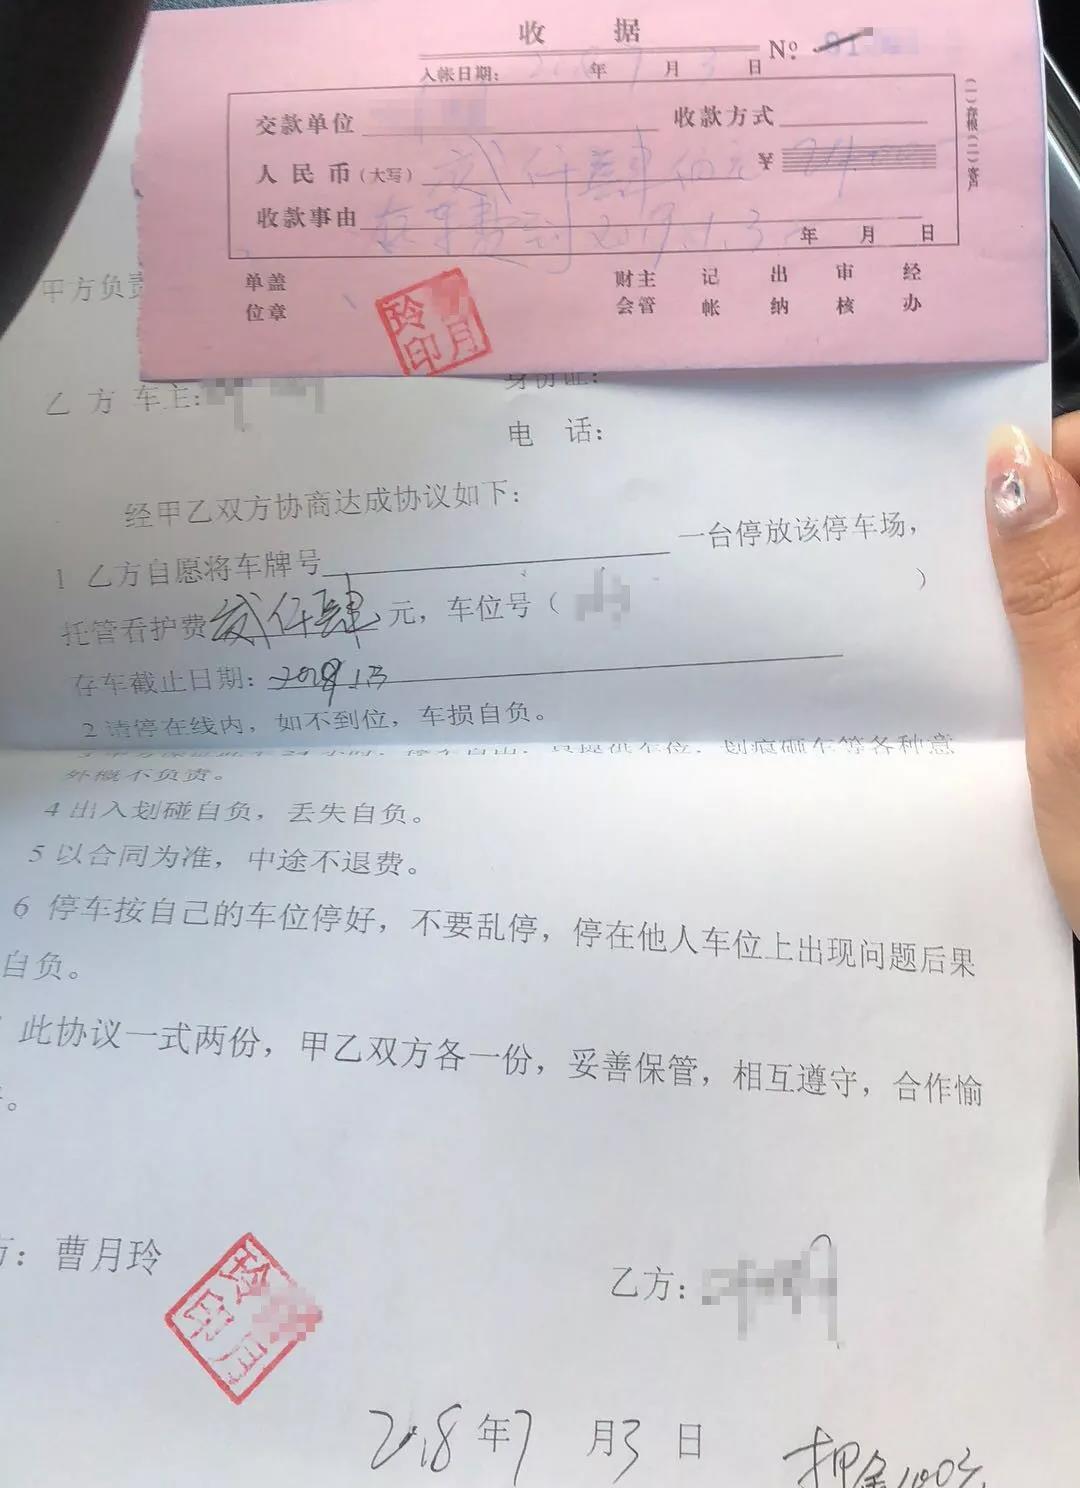 收 据
No: 01
入帐日期: 2018 年 7 月 3 日
交款单位 收款方式
人民币(大写) 贰仟肆佰元 ¥
收款事由 存车费到2019.1.3
年 月 日
(一)存根(二)客户
单位盖章 财会主管 记帐 出纳 审核 经办
玲月印
甲方负责
乙 方 车主:
身份证:
电 话:
经甲乙双方协商达成协议如下:
1 乙方自愿将车牌号 一台停放该停车场,
托管看护费贰仟肆元, 车位号( )
存车截止日期: 2019.1.3
2 请停在线内, 如不到位, 车损自负。
停车自由, 只提供车位, 划痕砸车等各种意
外概不负责。
4 出入划碰自负, 丢失自负。
5 以合同为准, 中途不退费。
6 停车按自己的车位停好, 不要乱停, 停在他人车位上出现问题后果
自负。
此协议一式两份, 甲乙双方各一份, 妥善保管, 相互遵守, 合作愉
。
方: 曹月玲
玲月印
乙方:
2018 年 7 月 3 日
押金100元